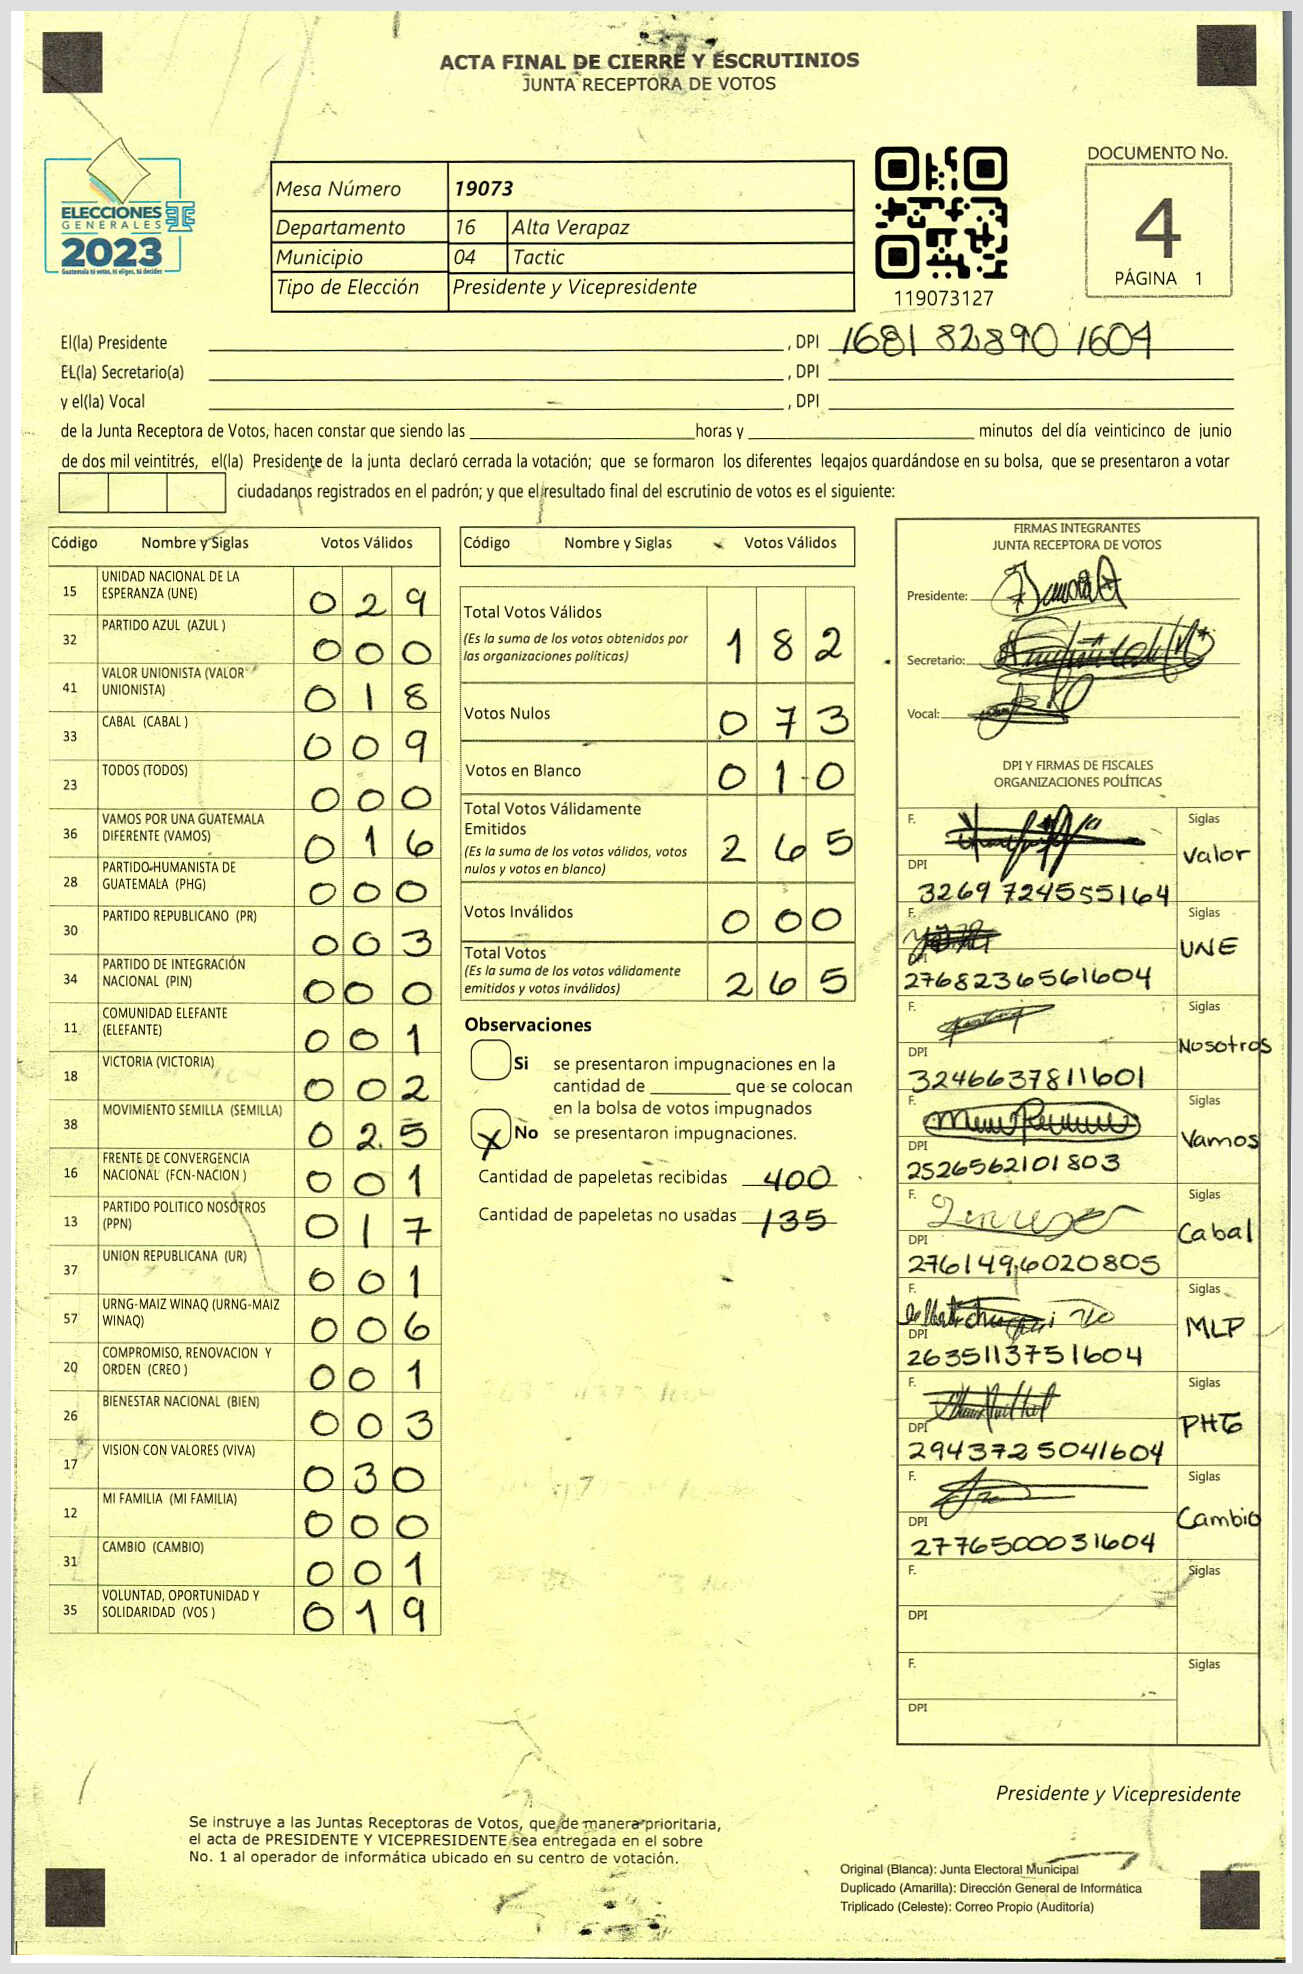 ACTA FINAL DE CIERRE Y ESCRUTINIOS
JUNTA RECEPTORA DE VOTOS
ELECCIONES
GENERALES
2023
Guatemala tú votas, tú eliges, tú decides
Mesa Número 19073
Departamento 16 Alta Verapaz
Municipio 04 Tactic
Tipo de Elección Presidente y Vicepresidente
119073127
DOCUMENTO No.
4
PÁGINA 1
El(la) Presidente , DPI 1681 82890 1604
EL(la) Secretario(a) , DPI
y el(la) Vocal , DPI
de la Junta Receptora de Votos, hacen constar que siendo las horas y minutos del día veinticinco de junio
de dos mil veintitrés, el(la) Presidente de la junta declaró cerrada la votación; que se formaron los diferentes legajos guardándose en su bolsa, que se presentaron a votar
ciudadanos registrados en el padrón; y que el resultado final del escrutinio de votos es el siguiente:
Código Nombre y Siglas Votos Válidos
15 UNIDAD NACIONAL DE LA ESPERANZA (UNE) 0 2 9
32 PARTIDO AZUL (AZUL ) 0 0 0
41 VALOR UNIONISTA (VALOR UNIONISTA) 0 1 8
33 CABAL (CABAL ) 0 0 9
23 TODOS (TODOS) 0 0 0
36 VAMOS POR UNA GUATEMALA DIFERENTE (VAMOS) 0 1 6
28 PARTIDO HUMANISTA DE GUATEMALA (PHG) 0 0 0
30 PARTIDO REPUBLICANO (PR) 0 0 3
34 PARTIDO DE INTEGRACIÓN NACIONAL (PIN) 0 0 0
11 COMUNIDAD ELEFANTE (ELEFANTE) 0 0 1
18 VICTORIA (VICTORIA) 0 0 2
38 MOVIMIENTO SEMILLA (SEMILLA) 0 2 5
16 FRENTE DE CONVERGENCIA NACIONAL (FCN-NACION ) 0 0 1
13 PARTIDO POLITICO NOSOTROS (PPN) 0 1 7
37 UNION REPUBLICANA (UR) 0 0 1
57 URNG-MAIZ WINAQ (URNG-MAIZ WINAQ) 0 0 6
20 COMPROMISO, RENOVACION Y ORDEN (CREO ) 0 0 1
26 BIENESTAR NACIONAL (BIEN) 0 0 3
17 VISION CON VALORES (VIVA) 0 3 0
12 MI FAMILIA (MI FAMILIA) 0 0 0
31 CAMBIO (CAMBIO) 0 0 1
35 VOLUNTAD, OPORTUNIDAD Y SOLIDARIDAD (VOS ) 0 1 9
Código Nombre y Siglas Votos Válidos
Total Votos Válidos 1 8 2
(Es la suma de los votos obtenidos por
las organizaciones políticas)
Votos Nulos 0 7 3
Votos en Blanco 0 1 0
Total Votos Válidamente
Emitidos 2 6 5
(Es la suma de los votos válidos, votos
nulos y votos en blanco)
Votos Inválidos 0 0 0
Total Votos 2 6 5
(Es la suma de los votos válidamente
emitidos y votos inválidos)
Observaciones
Si se presentaron impugnaciones en la
cantidad de que se colocan
en la bolsa de votos impugnados
X No se presentaron impugnaciones.
Cantidad de papeletas recibidas 400
Cantidad de papeletas no usadas 135
FIRMAS INTEGRANTES
JUNTA RECEPTORA DE VOTOS
Presidente:
Secretario:
Vocal:
DPI Y FIRMAS DE FISCALES
ORGANIZACIONES POLÍTICAS
F. Siglas
Valor
DPI
3269 724555164
F. Siglas
UNE
DPI
2768236561604
F. Siglas
Nosotros
DPI
3246637811601
F. Siglas
Vamos
DPI
2526562101803
F. Siglas
Cabal
DPI
2761496020805
F. Siglas
MLP
DPI
2635113751604
F. Siglas
PHG
DPI
2943725041604
F. Siglas
Cambio
DPI
2776500031604
F. Siglas
DPI
F. Siglas
DPI
Presidente y Vicepresidente
Se instruye a las Juntas Receptoras de Votos, que de manera prioritaria,
el acta de PRESIDENTE Y VICEPRESIDENTE sea entregada en el sobre
No. 1 al operador de informática ubicado en su centro de votación.
Original (Blanca): Junta Electoral Municipal
Duplicado (Amarilla): Dirección General de Informática
Triplicado (Celeste): Correo Propio (Auditoría)